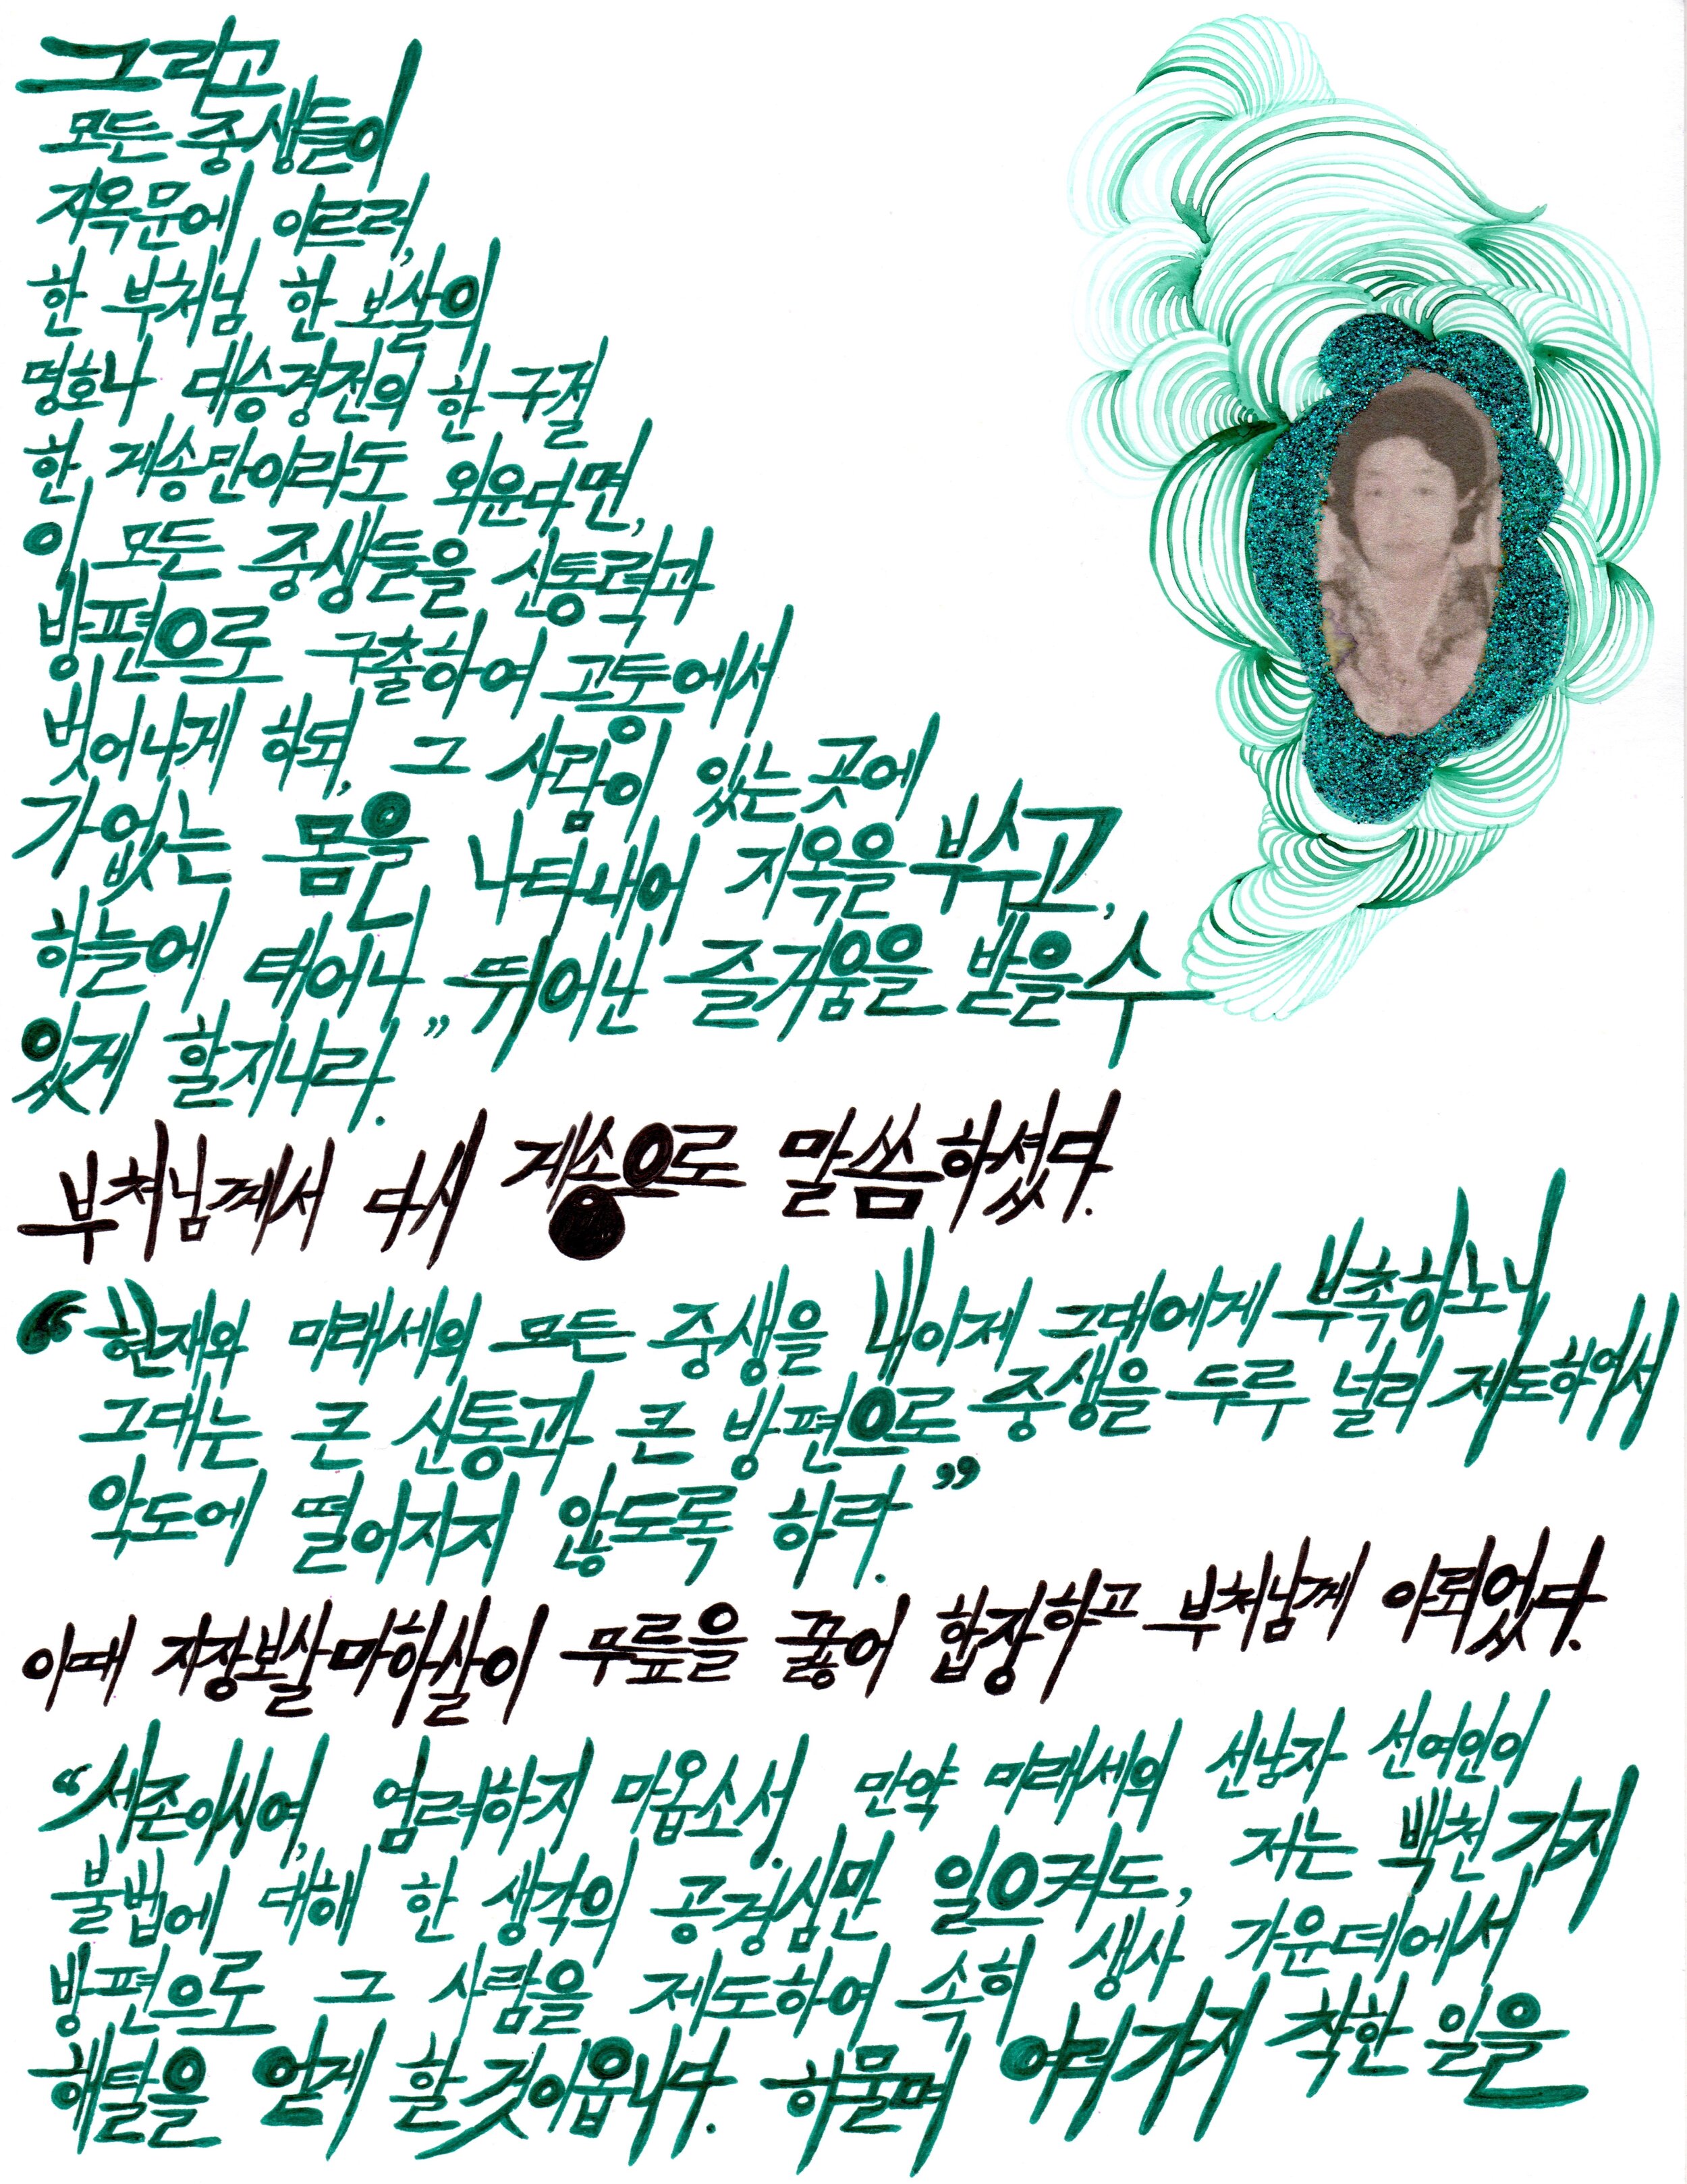 그리고
모든 중생들이
지옥문에 이르러,
한 부처님 한 보살의
명호나 대승경전의 한 구절
한 게송만이라도 외운다면,
이 모든 중생들을 신통력과
방편으로 구출하여 고통에서
벗어나게 하되, 그 사람이 있는 곳에
가없는 몸을 나타내어 지옥을 부수고,
하늘에 태어나 뛰어난 즐거움을 받을 수
있게 할지니라.”
부처님께서 다시 게송으로 말씀하셨다.
“현재와 미래세의 모든 중생을 내 이제 그대에게 부촉하노니
그대는 큰 신통과 큰 방편으로 중생을 두루 널리 제도하여서
악도에 떨어지지 않도록 하라.”
이때 지장보살마하살이 무릎을 꿇어 합장하고 부처님께 아뢰었다.
“세존이시여, 염려하지 마옵소서. 만약 미래세의 선남자 선여인이
불법에 대해 한 생각의 공경심만 일으켜도, 저는 백천 가지
방편으로 그 사람을 제도하여 속히 생사 가운데에서
해탈을 얻게 할 것이옵니다. 하물며 여러가지 착한 일을